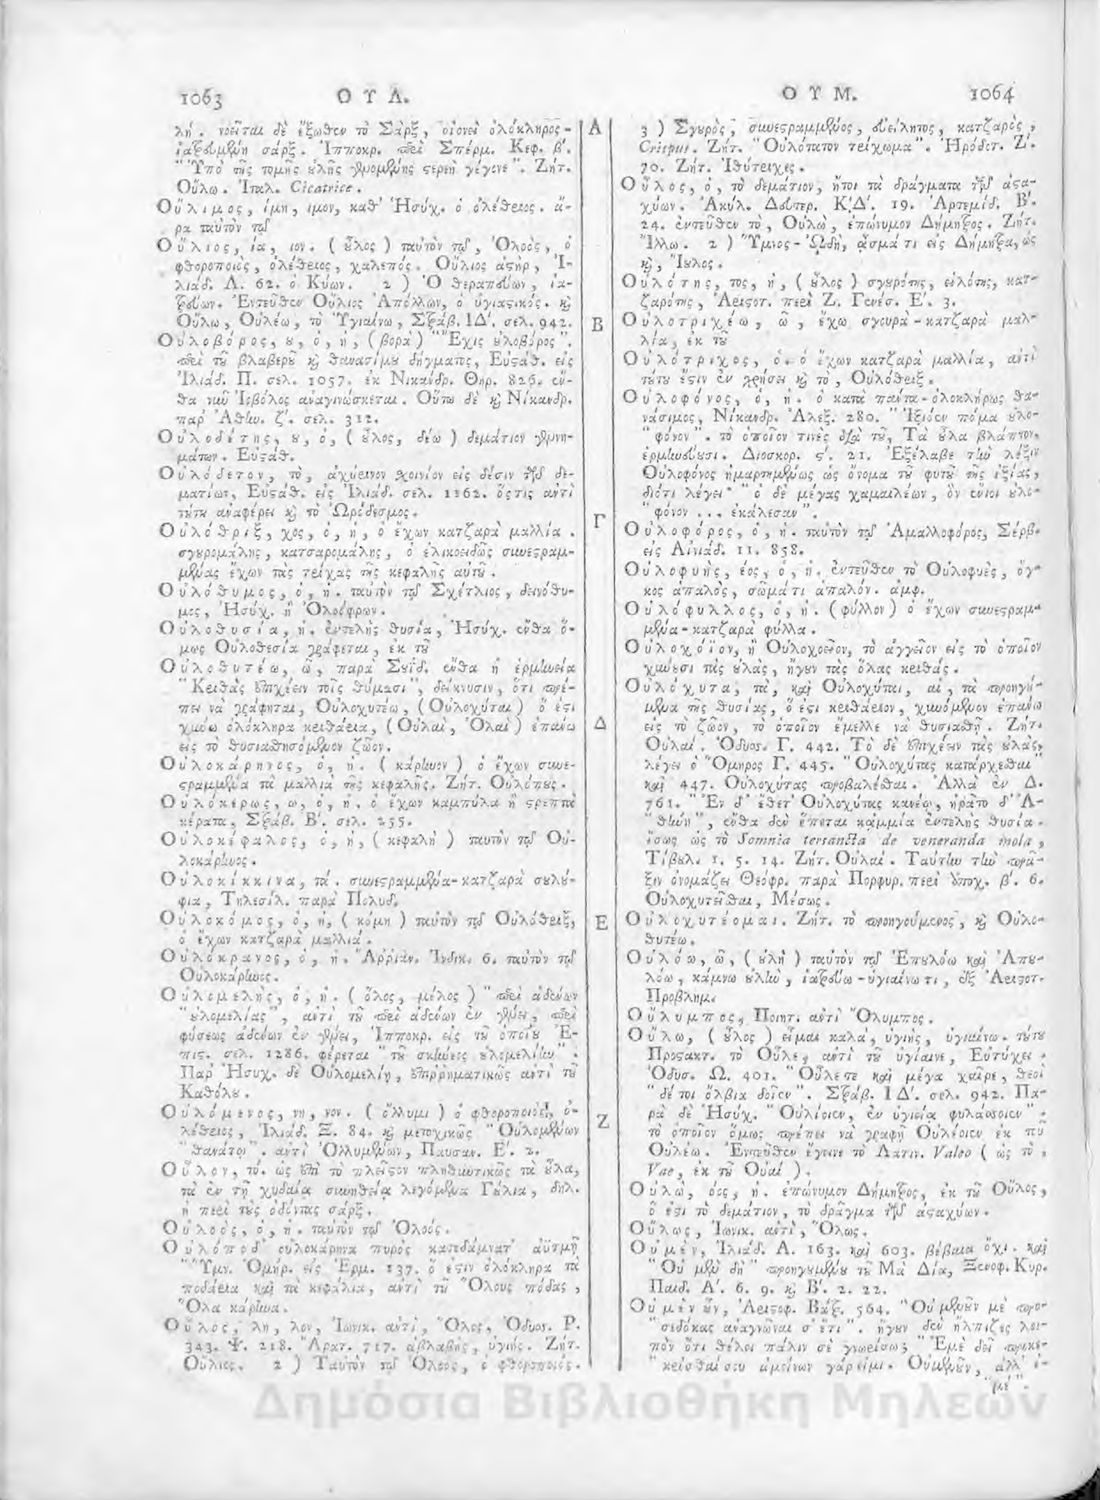 1063 Ο Υ Λ.
λή. νοεῖται δὲ ἔξωθεν τὸ Σάρξ, οἱονεὶ ὁλόκληρος-
ἰατρευμένη σάρξ. Ἱπποκρ. περὶ Σπέρμ. Κεφ. β΄.
"Ὑπὸ τῆς τομῆς ὐλῆς γενομένης στερεὴ γέγονε". Ζήτ.
Οὔλω. Ἰταλ. Cicatrice.
Οὔλιμος, ίμη, ιμον, καθ᾽ Ἡσύχ. ὁ ὀλέθριος. ἄ-
ρα ταὐτὸν τῷ
Οὔλιος, ία, ιον. ( ὖλος ) ταὐτὸν τῷ, Ὀλοὸς, ὁ
φθοροποιὸς, ὀλέθριος, χαλεπός. Οὔλιος ἀστὴρ, Ἰ-
λιάδ. Λ. 62. ὁ Κύων. 2 ) Ὁ θεραπεύων, ἰα-
τρεύων. Ἐντεῦθεν Οὔλιος Ἀπόλλων, ὁ ὑγιαστικός. καὶ
Οὔλω, Οὐλέω, τὸ Ὑγιαίνω, Στράβ. ΙΔ΄. σελ. 942.
Οὐλοβόρος, ου, ὁ, ἡ, ( βορὰ ) "Ἔχις οὐλοβόρος".
περὶ τοῦ βλαβεροῦ καὶ θανασίμου δήγματος, Εὐστάθ. εἰς
Ἰλιάδ. Π. σελ. 1057. ἐκ Νικάνδρ. Θηρ. 826. ἔν-
θα νῦν Ἰοβόλος ἀναγινώσκεται. Οὕτω δὲ καὶ Νίκανδρ.
παρ᾽ Ἀθην. ζ΄. σελ. 312.
Οὐλοδέτης, ου, ὁ, ( ὖλος, δέω ) δεμάτιον γεννη-
μάτων. Εὐστάθ.
Οὐλόδετον, τὸ, ἀχύρινον σχοινίον εἰς δέσιν τῶν δε-
ματίων, Εὐστάθ. εἰς Ἰλιάδ. σελ. 1162. ὅστις ἀντὶ
τούτου ἀναφέρει καὶ τὸ Ὠρόδεσμος.
Οὐλόθριξ, χος, ὁ, ἡ, ὁ ἔχων κατζαρὰ μαλλία.
σγουρομάλης, κατσαρομάλης, ὁ ἑλικοειδῶς συνεστραμ-
μένας ἔχων τὰς τρίχας τῆς κεφαλῆς αὐτοῦ.
Οὐλόθυμος, ὁ, ἡ. ταὐτὸν τῷ Σχέτλιος, δεινόθυ-
μος, Ἡσύχ. ἢ Ὀλοόφρων.
Οὐλοθυσία, ἡ. ἐντελὴς θυσία, Ἡσύχ. ἔνθα ὅ-
μως Οὐλοθεσία γράφεται, ἐκ τοῦ
Οὐλοθυτέω, ῶ, παρὰ Σουΐδ. ἔνθα ἡ ἑρμηνεία
"Κριθὰς ἐπιχέειν τοῖς θύμασι", δείκνυσιν, ὅτι πρέ-
πει νὰ γράφηται, Οὐλοχυτέω, ( Οὐλοχύται ) ὅ ἐστι
χύνω ὁλόκληρα κριθάρια, ( Οὐλαὶ, Ὀλαὶ ) ἐπάνω
εἰς τὸ θυσιασθησόμενον ζῶον.
Οὐλοκάρηνος, ὁ, ἡ. ( κάρηνον ) ὁ ἔχων συνε-
στραμμένα τὰ μαλλιὰ τῆς κεφαλῆς. Ζήτ. Οὐλόπους.
Οὐλοκέρως, ω, ὁ, ἡ. ὁ ἔχων καμπύλα ἢ στρεπτὰ
κέρατα, Στράβ. Β΄. σελ. 255.
Οὐλοκέφαλος, ὁ, ἡ, ( κεφαλὴ ) ταὐτὸν τῷ Οὐ-
λοκάρηνος.
Οὐλοκίκκινα, τά. συνεστραμμένα-κατζαρὰ σουλού-
φια, Τηλεσίλ. παρὰ Πολυδ.
Οὐλοκόμος, ὁ, ἡ, ( κόμη ) ταὐτὸν τῷ Οὐλόθριξ,
ὁ ἔχων κατζαρὰ μαλλιά.
Οὐλόκρανος, ὁ, ἡ. Ἀρριάν. Ἰνδικ. 6. ταὐτὸν τῷ
Οὐλοκάρηνος.
Οὐλομελὴς, ὁ, ἡ. ( ὅλος, μέλος ) "περὶ ἀδένων
"οὐλομελίας", ἀντὶ τοῦ περὶ ἀδένων ἐν γένει, περὶ
φύσεως ἀδένων ἐν γένει, Ἱπποκρ. εἰς τοῦ ὁποίου Ἐ-
πις. σελ. 1286. φέρεται "τοῦ σκήνεος οὐλομελίην".
Παρ᾽ Ἡσυχ. δὲ Οὐλομελίῃ, ἐπιρρηματικῶς ἀντὶ τοῦ
Καθόλου.
Οὐλόμενος, νη, νον. ( ὄλλυμι ) ὁ φθοροποιὸς, ὀ-
λέθριος, Ἰλιάδ. Ξ. 84. καὶ μετοχικῶς "Οὐλομένων
"θανάτῳ". ἀντὶ Ὀλλυμένων, Παυσαν. Ε΄. 2.
Οὖλον, τό. ὡς ἐπὶ τὸ πλεῖστον πληθυντικῶς τὰ οὖλα,
τὰ ἐν τῇ χυδαίᾳ συνηθείᾳ λεγόμενα Γούλια, δηλ.
ἡ περὶ τοὺς ὀδόντας σάρξ.
Οὐλοὸς, ὁ, ἡ. ταὐτὸν τῷ Ὀλοός.
Οὐλόποδ᾽ οὐλοκάρηνα πυρὸς κατεδάμνατ᾽ ἀϋτμῇ
"Ὕμν. Ὁμήρ. εἰς Ἑρμ. 137. ὅ ἐστιν ὁλόκληρα τὰ
ποδάρια καὶ τὰ κεφάλια, ἀντὶ τοῦ Ὅλους πόδας,
Ὅλα κάρηνα.
Οὖλος, λη, λον, Ἰωνικ. ἀντὶ, Ὅλος, Ὀδυσσ. Ρ.
343. Ψ. 218. Ἄρατ. 717. ἀβλαβὴς, ὑγιής. Ζήτ.
Οὔλιος. 2 ) Ταὐτὸν τῷ Ὀλοὸς, ὁ φθοροποιός.
Α
Β
Γ
Δ
Ε
Ζ
Ο Υ Μ. 1064
3 ) Σγουρὸς, συνεστραμμένος, εὐείλητος, κατζαρὸς,
Crispus. Ζήτ. "Οὐλότατον τρίχωμα". Ἡρόδοτ. Ζ΄.
70. Ζήτ. Ἰθύτριχες.
Οὖλος, ὁ, τὸ δεμάτιον, ἤτοι τὰ δράγματα τῶν ἀστα-
χύων. Ἀκύλ. Δευτερ. ΚΔ΄. 19. Ἀρτεμίδ. Β΄.
24. ἐντεῦθεν τὸ, Οὐλὼ, ἐπώνυμον Δήμητρος. Ζήτ.
Ἴλλω. 2 ) Ὕμνος-Ὠδὴ, ᾆσμά τι εἰς Δήμητρα, ὡς
καὶ, Ἴουλος.
Οὐλότης, τος, ἡ, ( ὖλος ) σγουρότης, εἰλότης, κατ-
ζαρότης, Ἀριστοτ. περὶ Ζ. Γενέσ. Ε΄. 3.
Οὐλοτριχέω, ῶ, ἔχω σγουρὰ-κατζαρὰ μαλ-
λία, ἐκ τοῦ
Οὐλότριχος, ὁ. ὁ ἔχων κατζαρὰ μαλλία, ἀντὶ
τούτου ἔστιν ἐν χρήσει καὶ τὸ, Οὐλόθριξ.
Οὐλοφόνος, ὁ, ἡ. ὁ κατὰ πάντα-ὁλοκλήρως θα-
νάσιμος, Νίκανδρ. Ἀλεξ. 280. "Ἰξιόεν πόμα οὐλο-
"φόνον". τὸ ὁποῖον τινὲς διὰ τοῦ, Τὰ οὖλα βλάπτον,
ἑρμηνεύουσι. Διοσκορ. ς΄. 21. Ἐξέλαβε τὴν λέξιν
Οὐλοφόνος ἡμαρτημένως ὡς ὄνομα τοῦ φυτοῦ τῆς ἰξίας,
διότι λέγει "ὁ δὲ μέγας χαμαιλέων, ὃν ἔνιοι οὐλο-
"φόνον . . . ἐκάλεσαν".
Οὐλοφόρος, ὁ, ἡ. ταὐτὸν τῷ Ἀμαλλοφόρος, Σέρβ.
εἰς Αἰνιάδ. 11. 858.
Οὐλοφυὴς, έος, ὁ, ἡ. ἐντεῦθεν τὸ Οὐλοφυὲς, ὄγ-
κος ἁπαλὸς, σῶμά τι ἁπαλόν. ἀμφ.
Οὐλόφυλλος, ὁ, ἡ. ( φύλλον ) ὁ ἔχων συνεστραμ-
μένα-κατζαρὰ φύλλα.
Οὐλοχόϊον, ἢ Οὐλοχοεῖον, τὸ ἀγγεῖον εἰς τὸ ὁποῖον
χύνουσι τὰς οὐλὰς, ἤγουν τὰς ὅλας κριθάς.
Οὐλόχυτα, τὰ, καὶ Οὐλοχύται, αἱ, τὰ προηγού-
μενα τῆς θυσίας, ὅ ἐστι κριθάριον, χυνόμενον ἐπάνω
εἰς τὸ ζῶον, τὸ ὁποῖον ἔμελλε νὰ θυσιασθῇ. Ζήτ.
Οὐλαί. Ὀδυσ. Γ. 442. Τὸ δὲ ἐπιχέειν τὰς οὐλὰς,
λέγει ὁ Ὅμηρος Γ. 445. "Οὐλοχύτας κατάρχεσθαι"
καὶ 447. Οὐλοχύτας προβαλέσθαι. Ἀλλὰ ἐν Δ.
761. "Ἐν δ᾽ ἔθετ᾽ Οὐλοχύτας κανέῳ, ἠρᾶτο δ᾽ Ἀ-
"θήνῃ", ἔνθα δὲν ἕπεται κἀμμία ἐντελὴς θυσία.
ἴσως ὡς τὸ Somnia ter sancta de veneranda mola,
Τίβυλ. 1. 5. 14. Ζήτ. Οὐλαί. Ταύτην τὴν πρᾶ-
ξιν ὀνομάζει Θεόφρ. παρὰ Πορφυρ. περὶ Ἀποχ. β΄. 6.
Οὐλοχυτεῖσθαι, Μέσως.
Οὐλοχυτέομαι. Ζήτ. τὸ προηγούμενος, καὶ Οὐλο-
θυτέω.
Οὐλόω, ῶ, ( οὐλὴ ) ταὐτὸν τῷ Ἐπουλόω καὶ Ἀπου-
λόω, κάμνω οὐλὴν, ἰατρεύω-ὑγιαίνω τι, ἐξ Ἀριστοτ.
Προβλημ.
Οὔλυμπος, Ποιητ. ἀντὶ Ὄλυμπος.
Οὔλω, ( ὖλος ) εἶμαι καλὰ, ὑγιὴς, ὑγιαίνω. τούτου
Προστακτ. τὸ Οὖλε, ἀντὶ τοῦ ὑγίαινε, Εὐτύχει.
Ὀδυσ. Ω. 401. "Οὖλέ τε καὶ μέγα χαῖρε, θεοὶ
"δέ τοι ὄλβια δοῖεν". Στράβ. ΙΔ΄. σελ. 942. Πα-
ρὰ δὲ Ἡσύχ. "Οὐλίοιεν, ἐν ὑγιείᾳ φυλάσσοιεν".
τὸ ὁποῖον ὅμως πρέπει νὰ γραφῇ Οὐλέοιεν ἐκ τοῦ
Οὐλέω. Ἐντεῦθεν ἔγινε τὸ Λατιν. Valeo ( ὡς τὸ,
Vae, ἐκ τοῦ Οὐαί ).
Οὐλὼ, όος, ἡ. ἐπώνυμον Δήμητρος, ἐκ τοῦ Οὖλος,
ὅ ἐστι τὸ δεμάτιον, τὸ δράγμα τῶν ἀσταχύων.
Οὔλως, Ἰωνικ. ἀντὶ, Ὅλως.
Οὐμὲν, Ἰλιάδ. Α. 163. καὶ 603. βέβαια ὄχι. καὶ
"Οὐ μὲν δὴ" προηγουμένου τοῦ Μὰ Δία, Ξενοφ. Κυρ.
Παιδ. Α΄. 6. 9. καὶ Β΄. 2. 22.
Οὐμὲν οὖν, Ἀριστοφ. Βάτρ. 564. "Οὐ μὲν οὖν με προ-
"σεδόκας ἀναγνῶναί σ᾽ ἔτι". ἤγουν δὲν ἤλπιζες λοι-
πὸν ὅτι θέλοι πάλιν σὲ γνωρίσω; "Ἐμὲ δεῖ
ἀμείνων γάρ εἰμι. Οὐμενοῦν, ἀλλ᾽ ἐ-
"μέ".
Δημόσια Βιβλιοθήκη Μηλεών